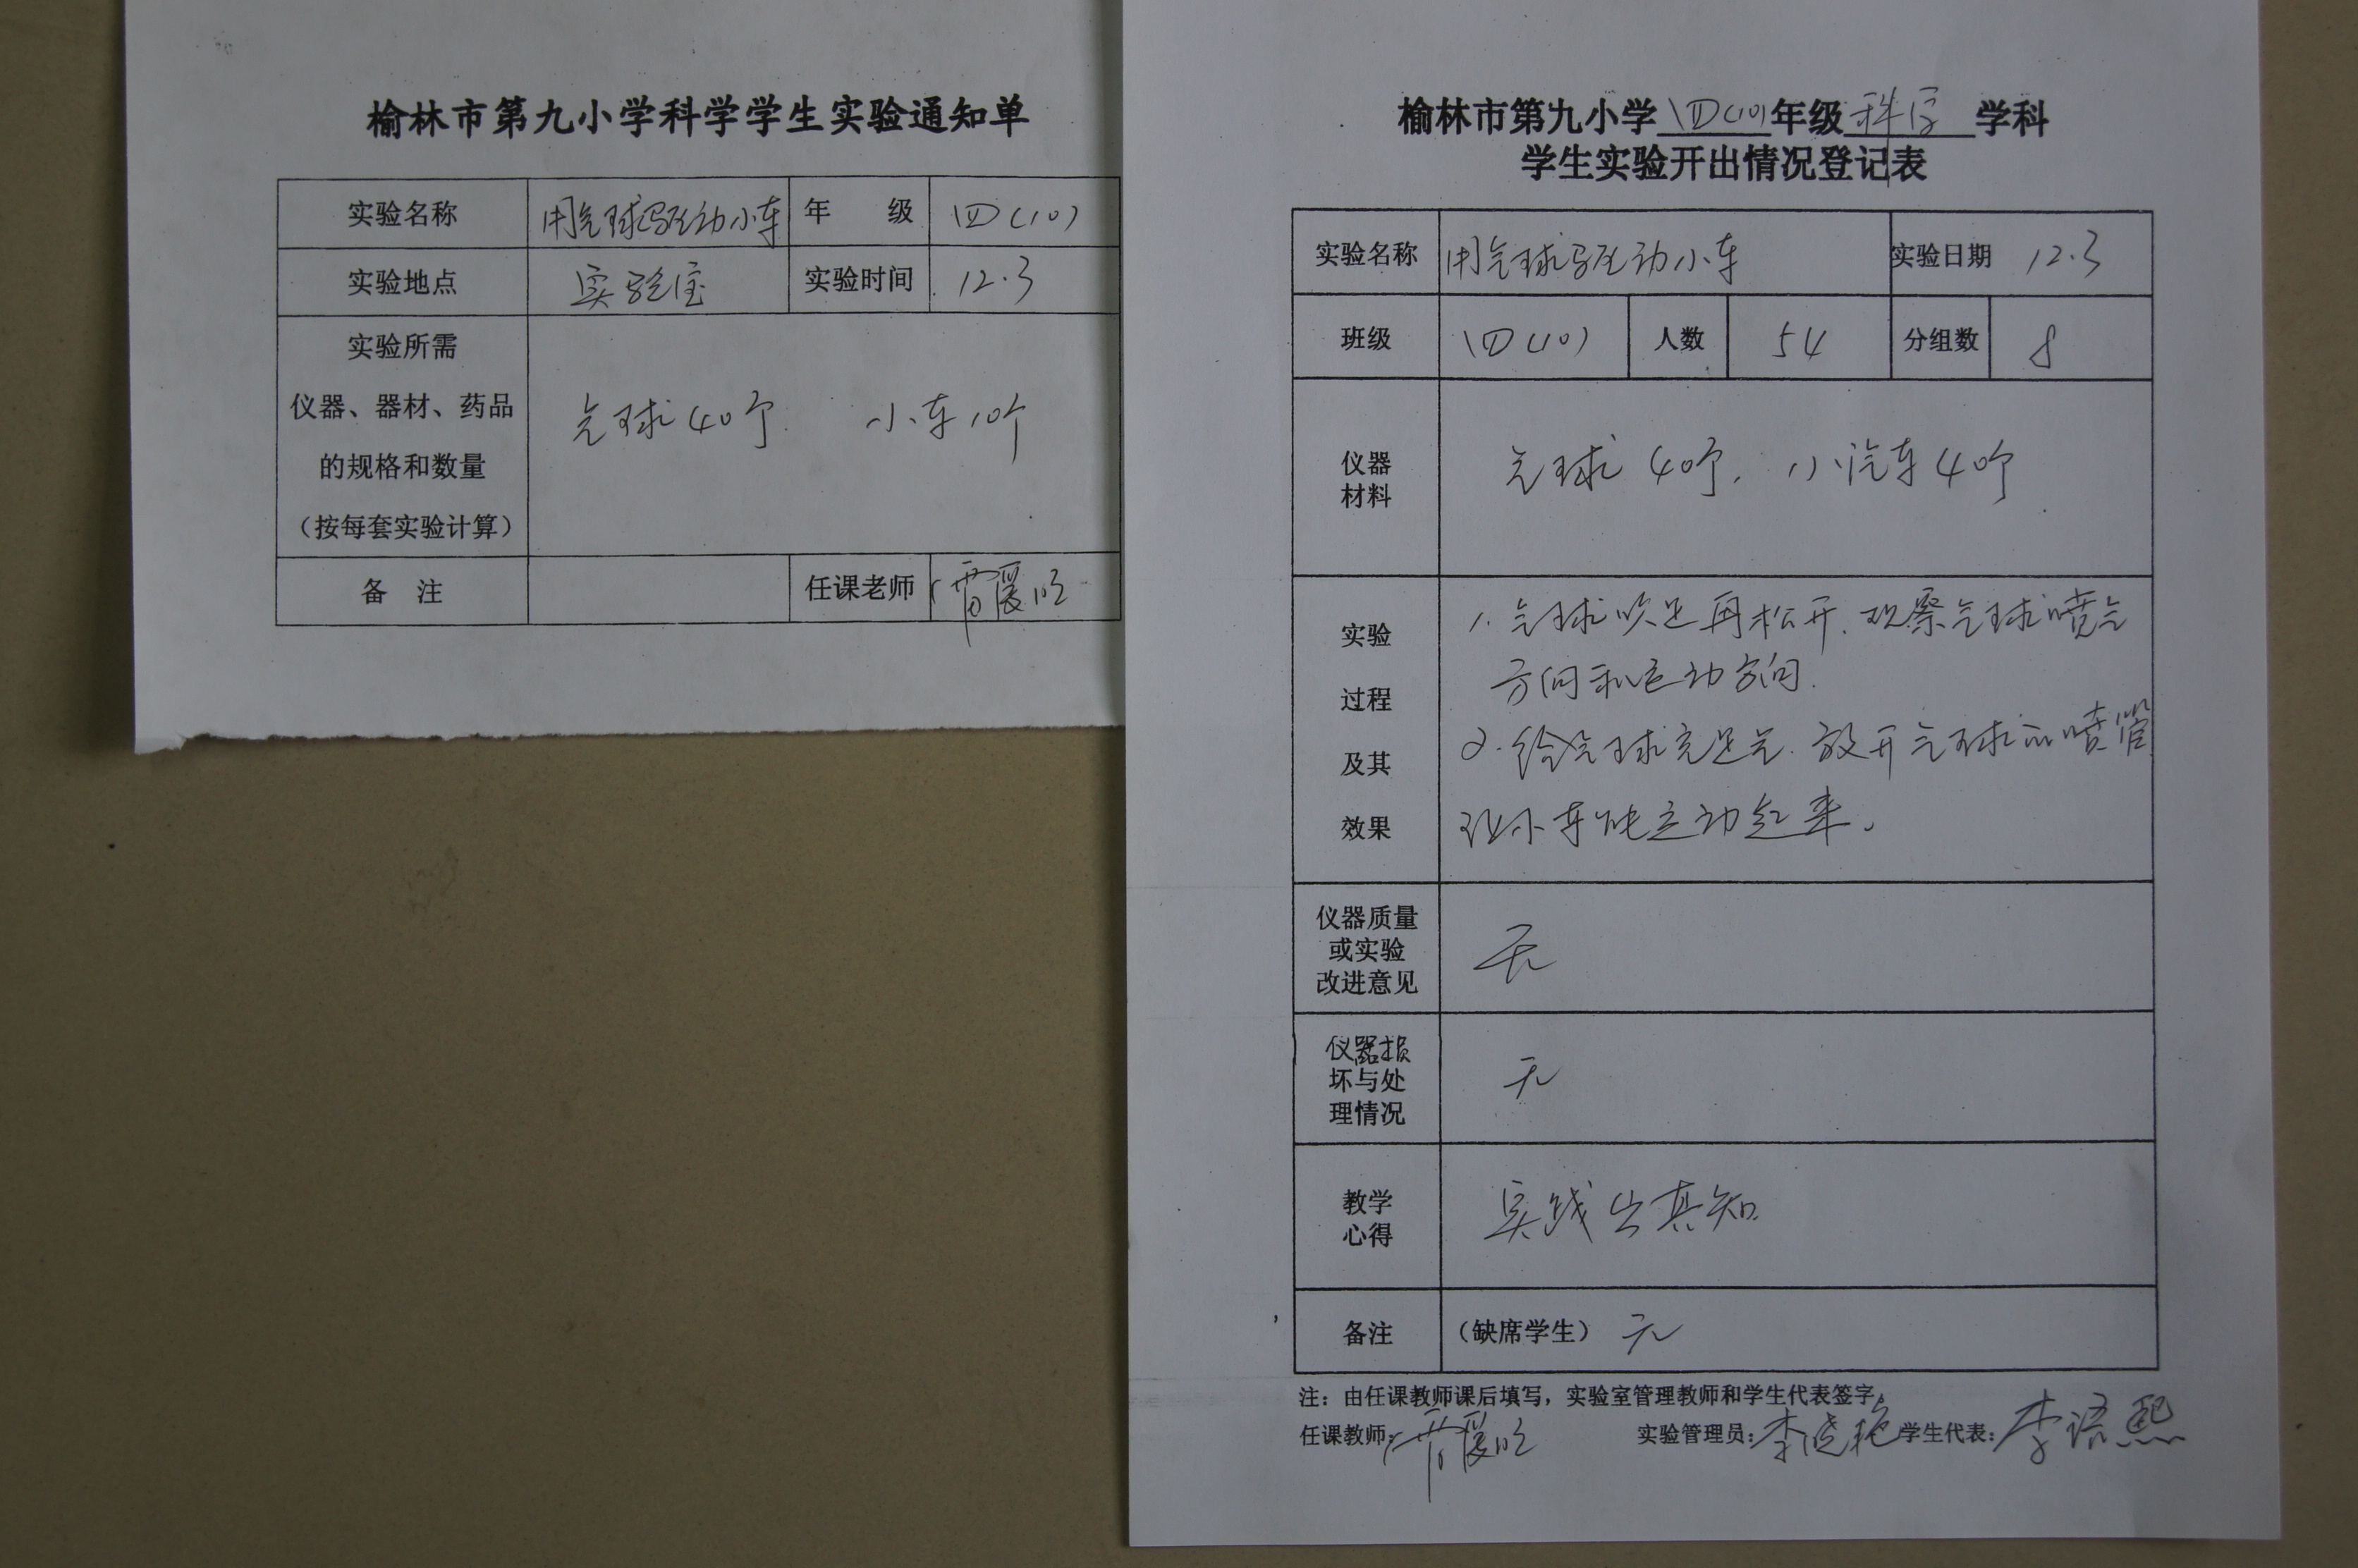 榆林市第九小学科学学生实验通知单
实验名称 用气球驱动小车 年 级 四(10)
实验地点 实验室 实验时间 12.3
实验所需
仪器、器材、药品
的规格和数量
（按每套实验计算）
气球40个 小车10个
备 注 任课老师
榆林市第九小学四(10)年级科学学科
学生实验开出情况登记表
实验名称 用气球驱动小车 实验日期 12.3
班级 四(10) 人数 54 分组数 8
仪器
材料
气球 40个, 小汽车40个
实验
过程
及其
效果
1. 气球吹足再松开, 观察气球喷气
方向和运动方向.
2. 给气球充足气. 放开气球的喷管
让小车能运动起来。
仪器质量
或实验
改进意见
无
仪器损
坏与处
理情况
无
教学
心得
实践出真知
备注 （缺席学生） 无
注：由任课教师课后填写，实验室管理教师和学生代表签字。
任课教师: 实验管理员: 李晓艳 学生代表: 李语熙